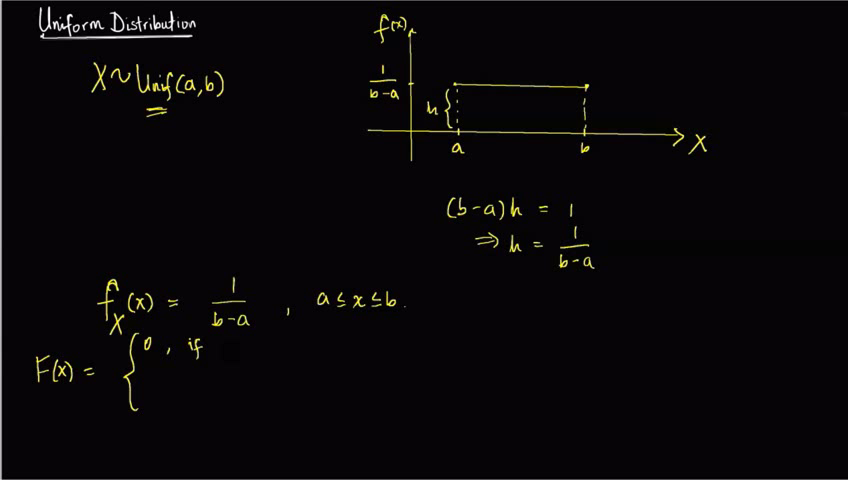 Uniform Distribution
X ~ Unif(a,b)
f(x)
1/(b-a)
h
a
b
X
(b-a)h = 1
⇒ h = 1/(b-a)
f_X(x) = 1/(b-a) , a ≤ x ≤ b.
F(x) = { 0 , if